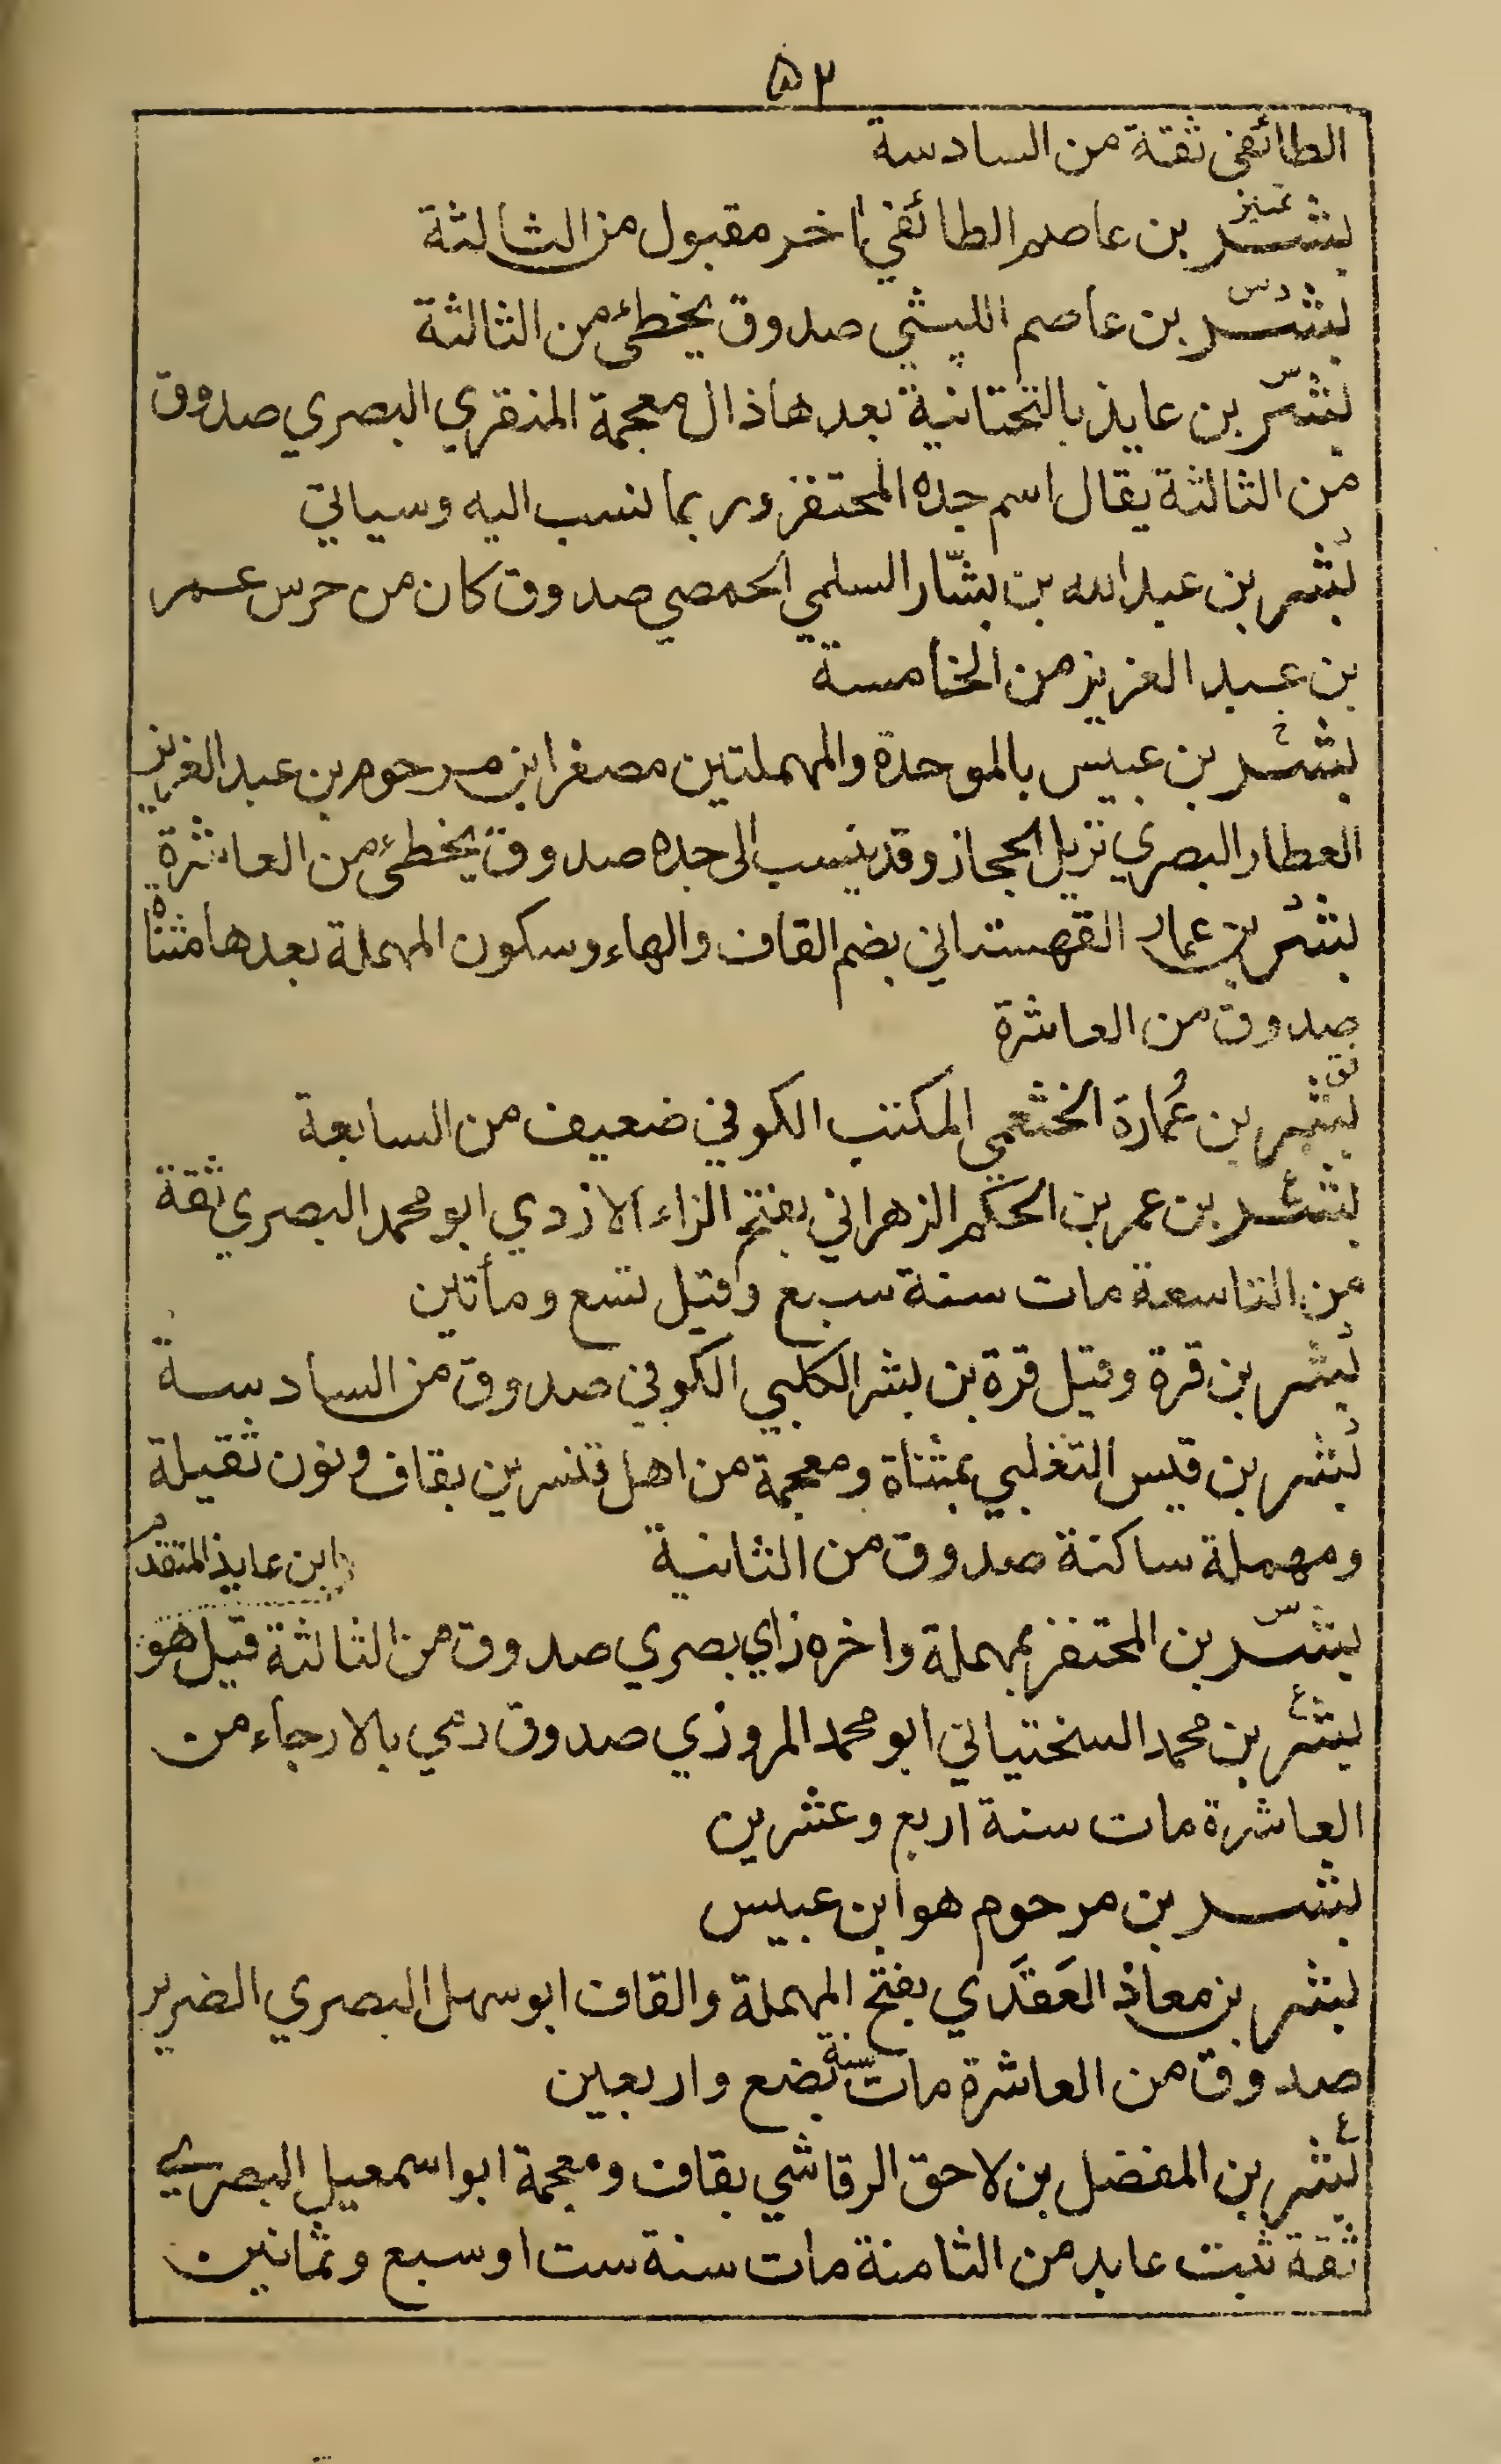 ٥٢
الطائفي ثقة من السادسة
تمييز
بشر بن عاصم الطائفي اخر مقبول من الثالثة
دس
بشر بن عاصم الليثي صدوق يخطئ من الثالثة
س
بشر بن عايذ بالتحتانية بعدها ذال معجمة المنقري البصري صدوق
من الثالثة يقال اسم جده المحتفز وربما نسب اليه وسياتي
د
بشر بن عبد الله بن بشار السلمي الحمصي صدوق كان من حرس عمر
بن عبد العزيز من الخامسة
خ
بشر بن عبيس بالموحدة والمهملتين مصغرا بن مرحوم بن عبد العزيز
العطار البصري نزيل الحجاز وقد ينسب الى جده صدوق يخطئ من العاشرة
بشر بن عمار القهستاني بضم القاف والهاء وسكون المهملة بعدها مثناة
صدوق من العاشرة
تق
بشر بن عُمارة الخثعمي المكتب الكوفي ضعيف من السابعة
ع
بشر بن عمر بن الحكم الزهراني بفتح الزاء الازدي ابو محمد البصري ثقة
من التاسعة مات سنة سبع وقيل تسع ومأتين
د
بشر بن قرة وقيل قرة بن بشر الكلبي الكوفي صدوق من السادسة
د
بشر بن قيس التغلبي بمثناة ومعجمة من اهل قنسرين بقاف ونون ثقيلة
ومهملة ساكنة صدوق من الثانية
ابن عايذ المتقدم
س
بشر بن المحتفز بمهملة واخره زاي بصري صدوق من الثالثة قيل هو
بشر بن محمد السختياني ابو محمد المروزي صدوق رمي بالارجاء من
العاشرة مات سنة اربع وعشرين
بشر بن مرحوم هو ابن عبيس
بشر بن معاذ العَقَدي بفتح المهملة والقاف ابو سهل البصري الضرير
صدوق من العاشرة مات سنة بضع واربعين
ع
بشر بن المفضل بن لاحق الرقاشي بقاف ومعجمة ابو اسمعيل البصري
ثقة ثبت عابد من الثامنة مات سنة ست او سبع وثمانين